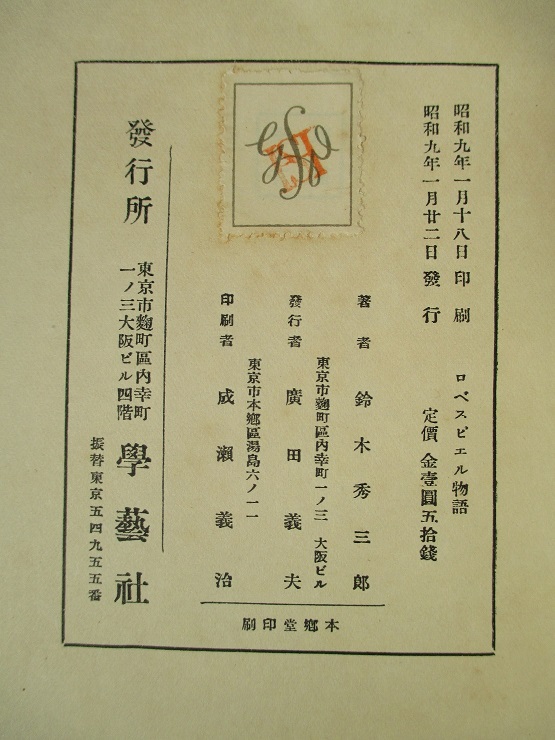 昭和九年一月十八日印刷
昭和九年一月廿二日發行
ロベスピエル物語
定價金壹圓五拾錢
著者 鈴木秀三郎
東京市麴町區內幸町一ノ三 大阪ビル
發行者 廣田義夫
東京市本鄕區湯島六ノ一一
印刷者 成瀨義治
本鄕堂印刷
發行所
東京市麴町區內幸町
一ノ三大阪ビル四階
學藝社
振替東京五四九五五番